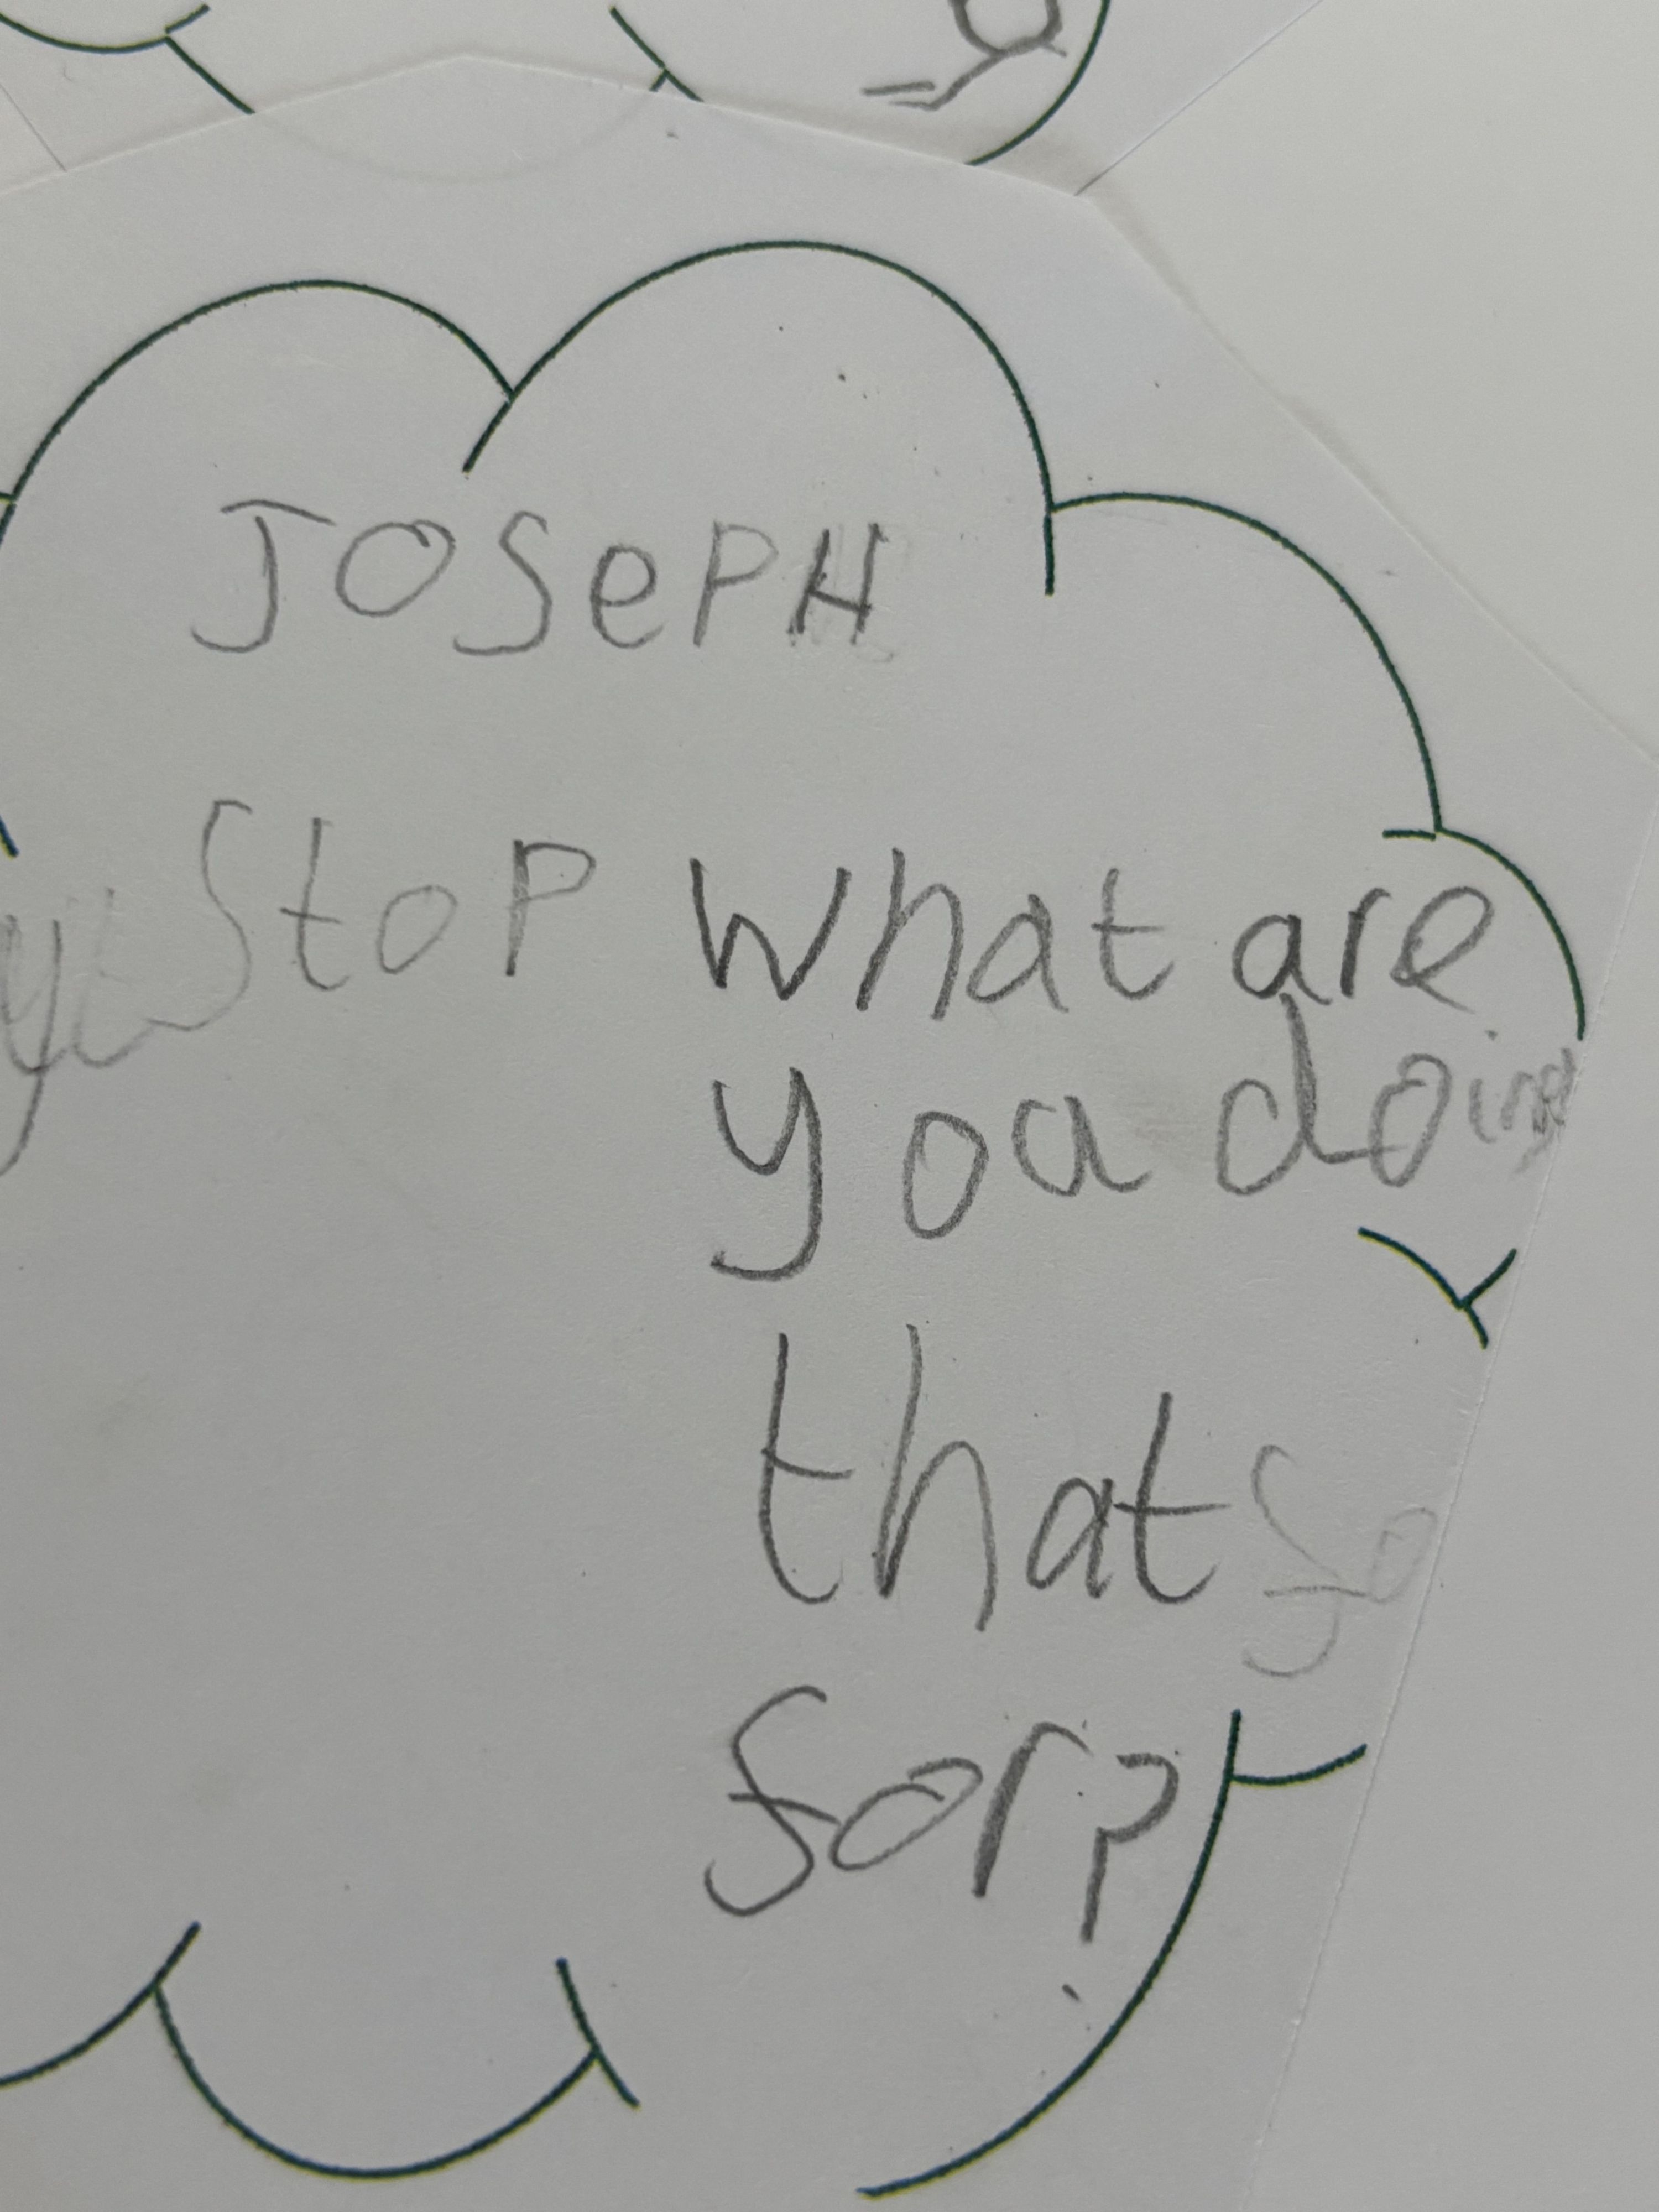 JOSePH
Stop what are
you doing
that fo
for?